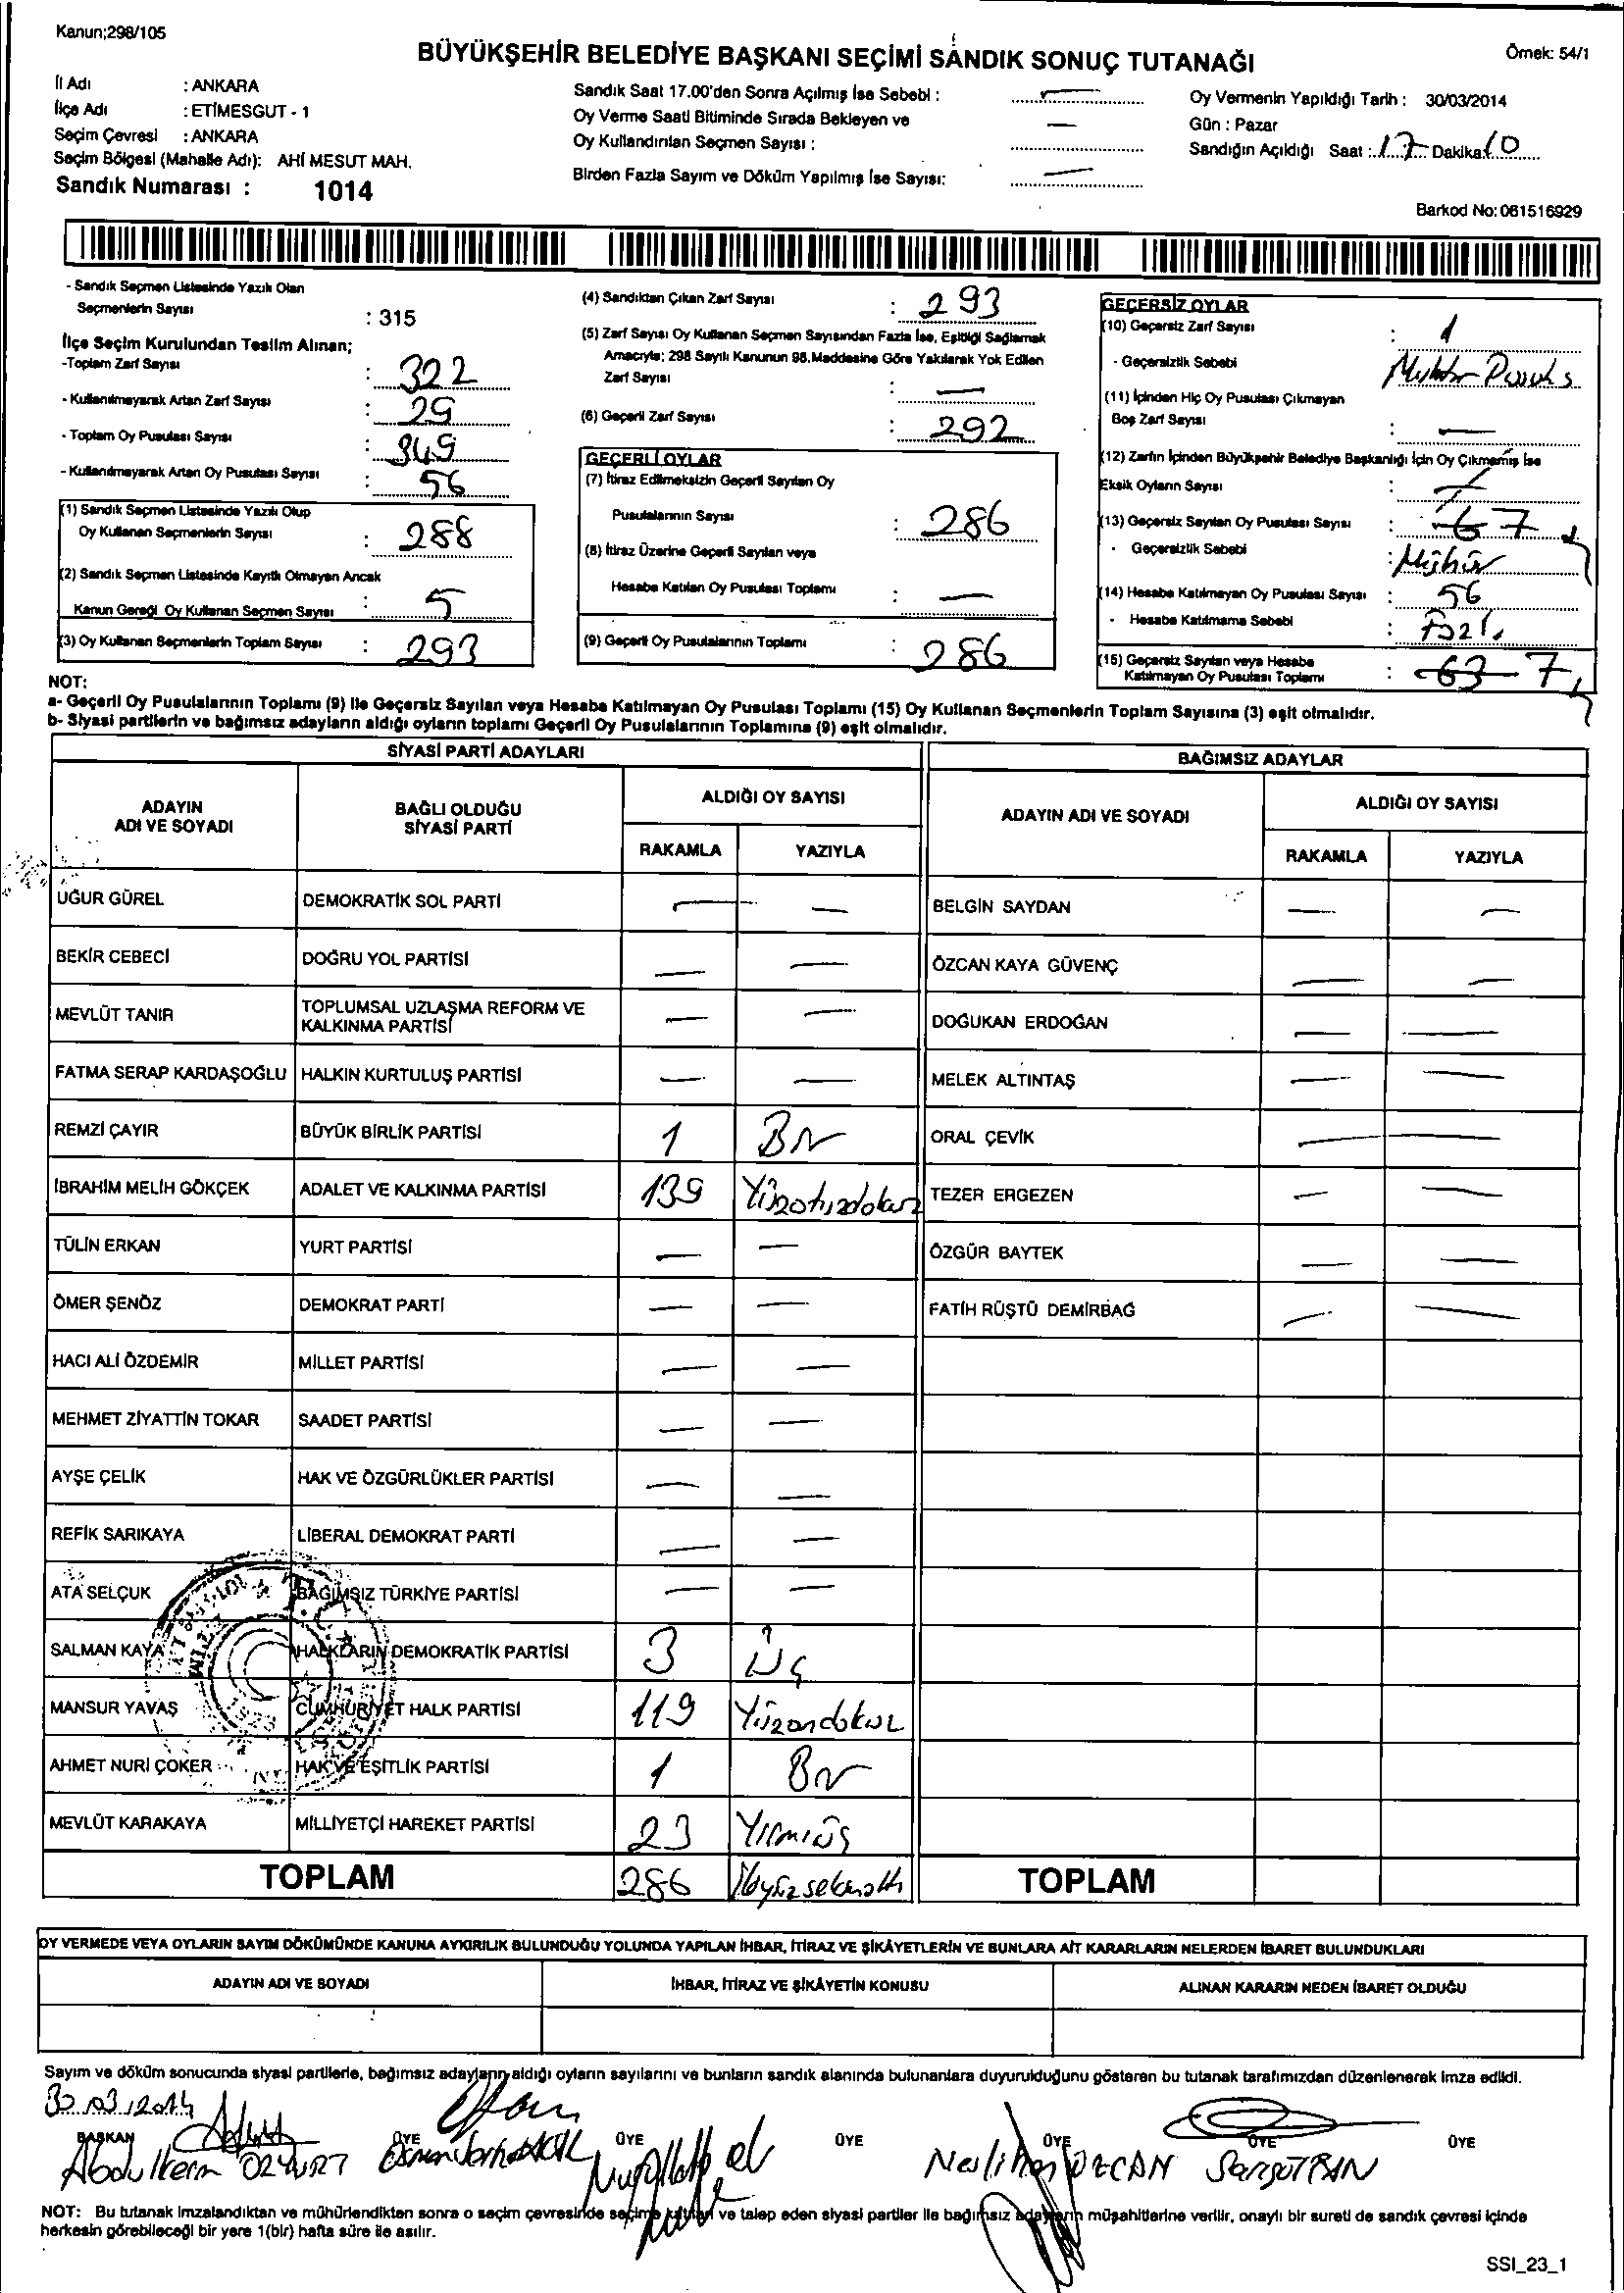 Kanun;298/105
BÜYÜKŞEHİR BELEDİYE BAŞKANI SEÇİMİ SANDIK SONUÇ TUTANAĞI
Örnek: 54/1
İl Adı : ANKARA
İlçe Adı : ETİMESGUT - 1
Seçim Çevresi : ANKARA
Seçim Bölgesi (Mahalle Adı): AHİ MESUT MAH.
Sandık Numarası : 1014
Sandık Saat 17.00'den Sonra Açılmış İse Sebebi :
Oy Verme Saati Bitiminde Sırada Bekleyen ve
Oy Kullandırılan Seçmen Sayısı : —
Birden Fazla Sayım ve Döküm Yapılmış İse Sayısı: —
Oy Vermenin Yapıldığı Tarih : 30/03/2014
Gün : Pazar
Sandığın Açıldığı Saat : 17 Dakika: 10
Barkod No: 061516929
- Sandık Seçmen Listesinde Yazılı Olan
Seçmenlerin Sayısı : 315
İlçe Seçim Kurulundan Teslim Alınan;
-Toplam Zarf Sayısı : 322
- Kullanılmayarak Artan Zarf Sayısı : 29
- Toplam Oy Pusulası Sayısı : 349
- Kullanılmayarak Artan Oy Pusulası Sayısı : 56
(1) Sandık Seçmen Listesinde Yazılı Olup
Oy Kullanan Seçmenlerin Sayısı : 288
(2) Sandık Seçmen Listesinde Kayıtlı Olmayan Ancak
Kanun Gereği Oy Kullanan Seçmen Sayısı : 5
(3) Oy Kullanan Seçmenlerin Toplam Sayısı : 293
(4) Sandıktan Çıkan Zarf Sayısı : 293
(5) Zarf Sayısı Oy Kullanan Seçmen Sayısından Fazla İse, Eşitliği Sağlamak
Amacıyla; 298 Sayılı Kanunun 98.Maddesine Göre Yakılarak Yok Edilen
Zarf Sayısı : —
(6) Geçerli Zarf Sayısı : 292
GEÇERLİ OYLAR
(7) İtiraz Edilmeksizin Geçerli Sayılan Oy
Pusulalarının Sayısı : 286
(8) İtiraz Üzerine Geçerli Sayılan veya
Hesaba Katılan Oy Pusulası Toplamı : —
(9) Geçerli Oy Pusulalarının Toplamı : 286
GEÇERSİZ OYLAR
(10) Geçersiz Zarf Sayısı : 1
- Geçersizlik Sebebi
(11) İçinden Hiç Oy Pusulası Çıkmayan
Boş Zarf Sayısı : —
(12) Zarfın İçinden Büyükşehir Belediye Başkanlığı İçin Oy Çıkmamış İse
Eksik Oyların Sayısı :
(13) Geçersiz Sayılan Oy Pusulası Sayısı : 6 7
- Geçersizlik Sebebi : Mühür
(14) Hesaba Katılmayan Oy Pusulası Sayısı : 56
- Hesaba Katılmama Sebebi :
(15) Geçersiz Sayılan veya Hesaba
Katılmayan Oy Pusulası Toplamı : 63 7
NOT:
a- Geçerli Oy Pusulalarının Toplamı (9) ile Geçersiz Sayılan veya Hesaba Katılmayan Oy Pusulası Toplamı (15) Oy Kullanan Seçmenlerin Toplam Sayısına (3) eşit olmalıdır.
b- Siyasi partilerin ve bağımsız adayların aldığı oyların toplamı Geçerli Oy Pusulalarının Toplamına (9) eşit olmalıdır.
SİYASİ PARTİ ADAYLARI
BAĞIMSIZ ADAYLAR
ADAYIN ADI VE SOYADI
BAĞLI OLDUĞU SİYASİ PARTİ
ALDIĞI OY SAYISI
RAKAMLA YAZIYLA
ADAYIN ADI VE SOYADI
ALDIĞI OY SAYISI
RAKAMLA YAZIYLA
UĞUR GÜREL DEMOKRATİK SOL PARTİ — — BELGİN SAYDAN — —
BEKİR CEBECİ DOĞRU YOL PARTİSİ — — ÖZCAN KAYA GÜVENÇ — —
MEVLÜT TANIR TOPLUMSAL UZLAŞMA REFORM VE KALKINMA PARTİSİ — — DOĞUKAN ERDOĞAN — —
FATMA SERAP KARDAŞOĞLU HALKIN KURTULUŞ PARTİSİ — — MELEK ALTINTAŞ — —
REMZİ ÇAYIR BÜYÜK BİRLİK PARTİSİ 1 Bir ORAL ÇEVİK — —
İBRAHİM MELİH GÖKÇEK ADALET VE KALKINMA PARTİSİ 139 Yüzotuzdokuz TEZER ERGEZEN — —
TÜLİN ERKAN YURT PARTİSİ — — ÖZGÜR BAYTEK — —
ÖMER ŞENÖZ DEMOKRAT PARTİ — — FATİH RÜŞTÜ DEMİRBAĞ — —
HACI ALİ ÖZDEMİR MİLLET PARTİSİ — —
MEHMET ZİYATTİN TOKAR SAADET PARTİSİ — —
AYŞE ÇELİK HAK VE ÖZGÜRLÜKLER PARTİSİ — —
REFİK SARIKAYA LİBERAL DEMOKRAT PARTİ — —
ATA SELÇUK BAĞIMSIZ TÜRKİYE PARTİSİ — —
SALMAN KAYA HALKLARIN DEMOKRATİK PARTİSİ 3 Üç
MANSUR YAVAŞ CUMHURİYET HALK PARTİSİ 119 Yüzondokuz
AHMET NURİ ÇOKER HAK VE EŞİTLİK PARTİSİ 1 Bir
MEVLÜT KARAKAYA MİLLİYETÇİ HAREKET PARTİSİ 23 Yirmiüç
TOPLAM 286 İkiyüzseksenaltı TOPLAM
OY VERMEDE VEYA OYLARIN SAYIM DÖKÜMÜNDE KANUNA AYKIRILIK BULUNDUĞU YOLUNDA YAPILAN İHBAR, İTİRAZ VE ŞİKÂYETLERİN VE BUNLARA AİT KARARLARIN NELERDEN İBARET BULUNDUKLARI
ADAYIN ADI VE SOYADI İHBAR, İTİRAZ VE ŞİKÂYETİN KONUSU ALINAN KARARIN NEDEN İBARET OLDUĞU
Sayım ve döküm sonucunda siyasi partilerle, bağımsız adayların aldığı oyların sayılarını ve bunların sandık alanında bulunanlara duyurulduğunu gösteren bu tutanak tarafımızdan düzenlenerek imza edildi.
30.03.2014
BAŞKAN ÜYE ÜYE ÜYE ÜYE ÜYE ÜYE
Abdulkerim ÖZYURT
NOT: Bu tutanak imzalandıktan ve mühürlendikten sonra o seçim çevresinde seçime katılan ve talep eden siyasi partiler ile bağımsız adayların müşahitlerine verilir, onaylı bir sureti de sandık çevresi içinde
herkesin görebileceği bir yere 1(bir) hafta süre ile asılır.
SSI_23_1